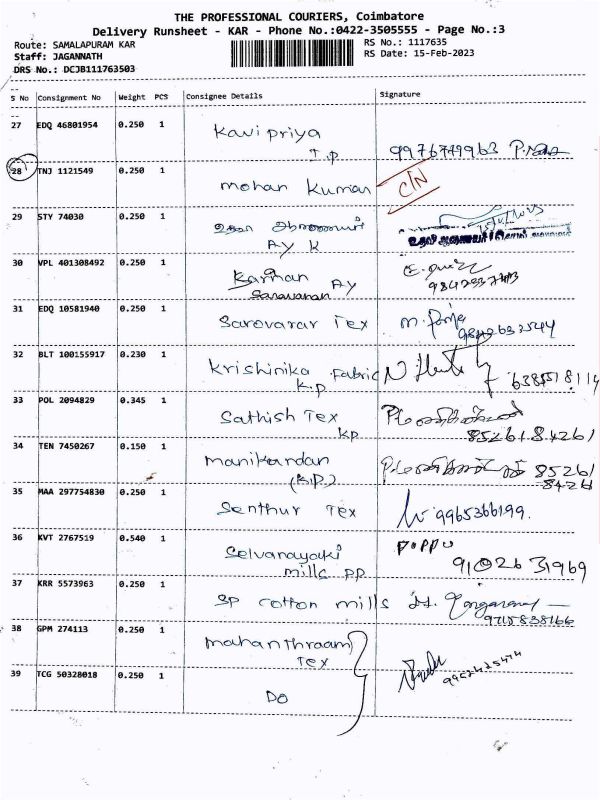 THE PROFESSIONAL COURIERS, Coimbatore
Delivery Runsheet - KAR - Phone No.:0422-3505555 - Page No.:3
Route: SAMALAPURAM KAR
RS No.: 1117635
Staff: JAGANNATH
RS Date: 15-Feb-2023
DRS No.: DCJB111763503
S No Consignment No Weight PCS Consignee Details Signature
27 EDQ 46801954 0.250 1 Kavipriya
T.p 9976749963
28 TNJ 1121549 0.250 1 Mohan Kumar C/N
29 STY 74030 0.250 1
AY K
30 VPL 401308492 0.250 1 Kannan AY
Saravanan
31 EDQ 10581940 0.250 1 Sarovarar Tex
32 BLT 100155917 0.230 1 Krishinika Fabric
K.p
33 POL 2094829 0.345 1 Sathish Tex
KP 8526184261
34 TEN 7450267 0.150 1 Manikandan
(K.P.) 85261
84261
35 MAA 297754830 0.250 1 Senthur Tex 9965366199.
36 KVT 2767519 0.540 1 Selvanayaki
mills PP 9102631969
37 KRR 5573963 0.250 1 SP cotton mills
9715838166
38 GPM 274113 0.250 1 Mahanthraam
Tex
39 TCG 50328018 0.250 1 Do